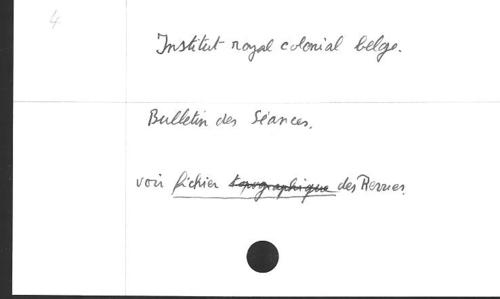 4
Institut royal colonial belge.
Bulletin des Séances.
voir fichier topographique des Revues.